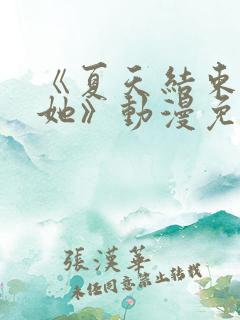 《夏天結束
她》動漫免
張漢華
未经同意禁止转载